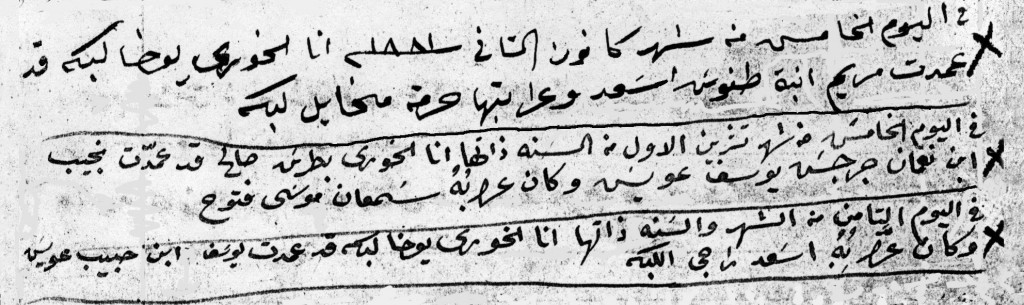 في اليوم الخامس من شهر كانون الثاني سنة ١٨٨١ انا الخوري يوحنا لبكه قد
عمدت مريم ابنة طنوس اسعد وعرابتها حرمة مخايل لبكه
في اليوم الخامس من شهر تشرين الاول من السنه ذاتها انا الخوري بطرس صالح قد عمدت نجيب
ابن نعمان جرجس يوسف عويس وكان عرابُهُ سمعان موسى فتوح
في اليوم الثامن من الشهر والسنه ذاتها انا الخوري يوحنا لبكه قد عمدت يوسف ابن حبيب عويس
وكان عرابُهُ اسعد راجي اللبكه